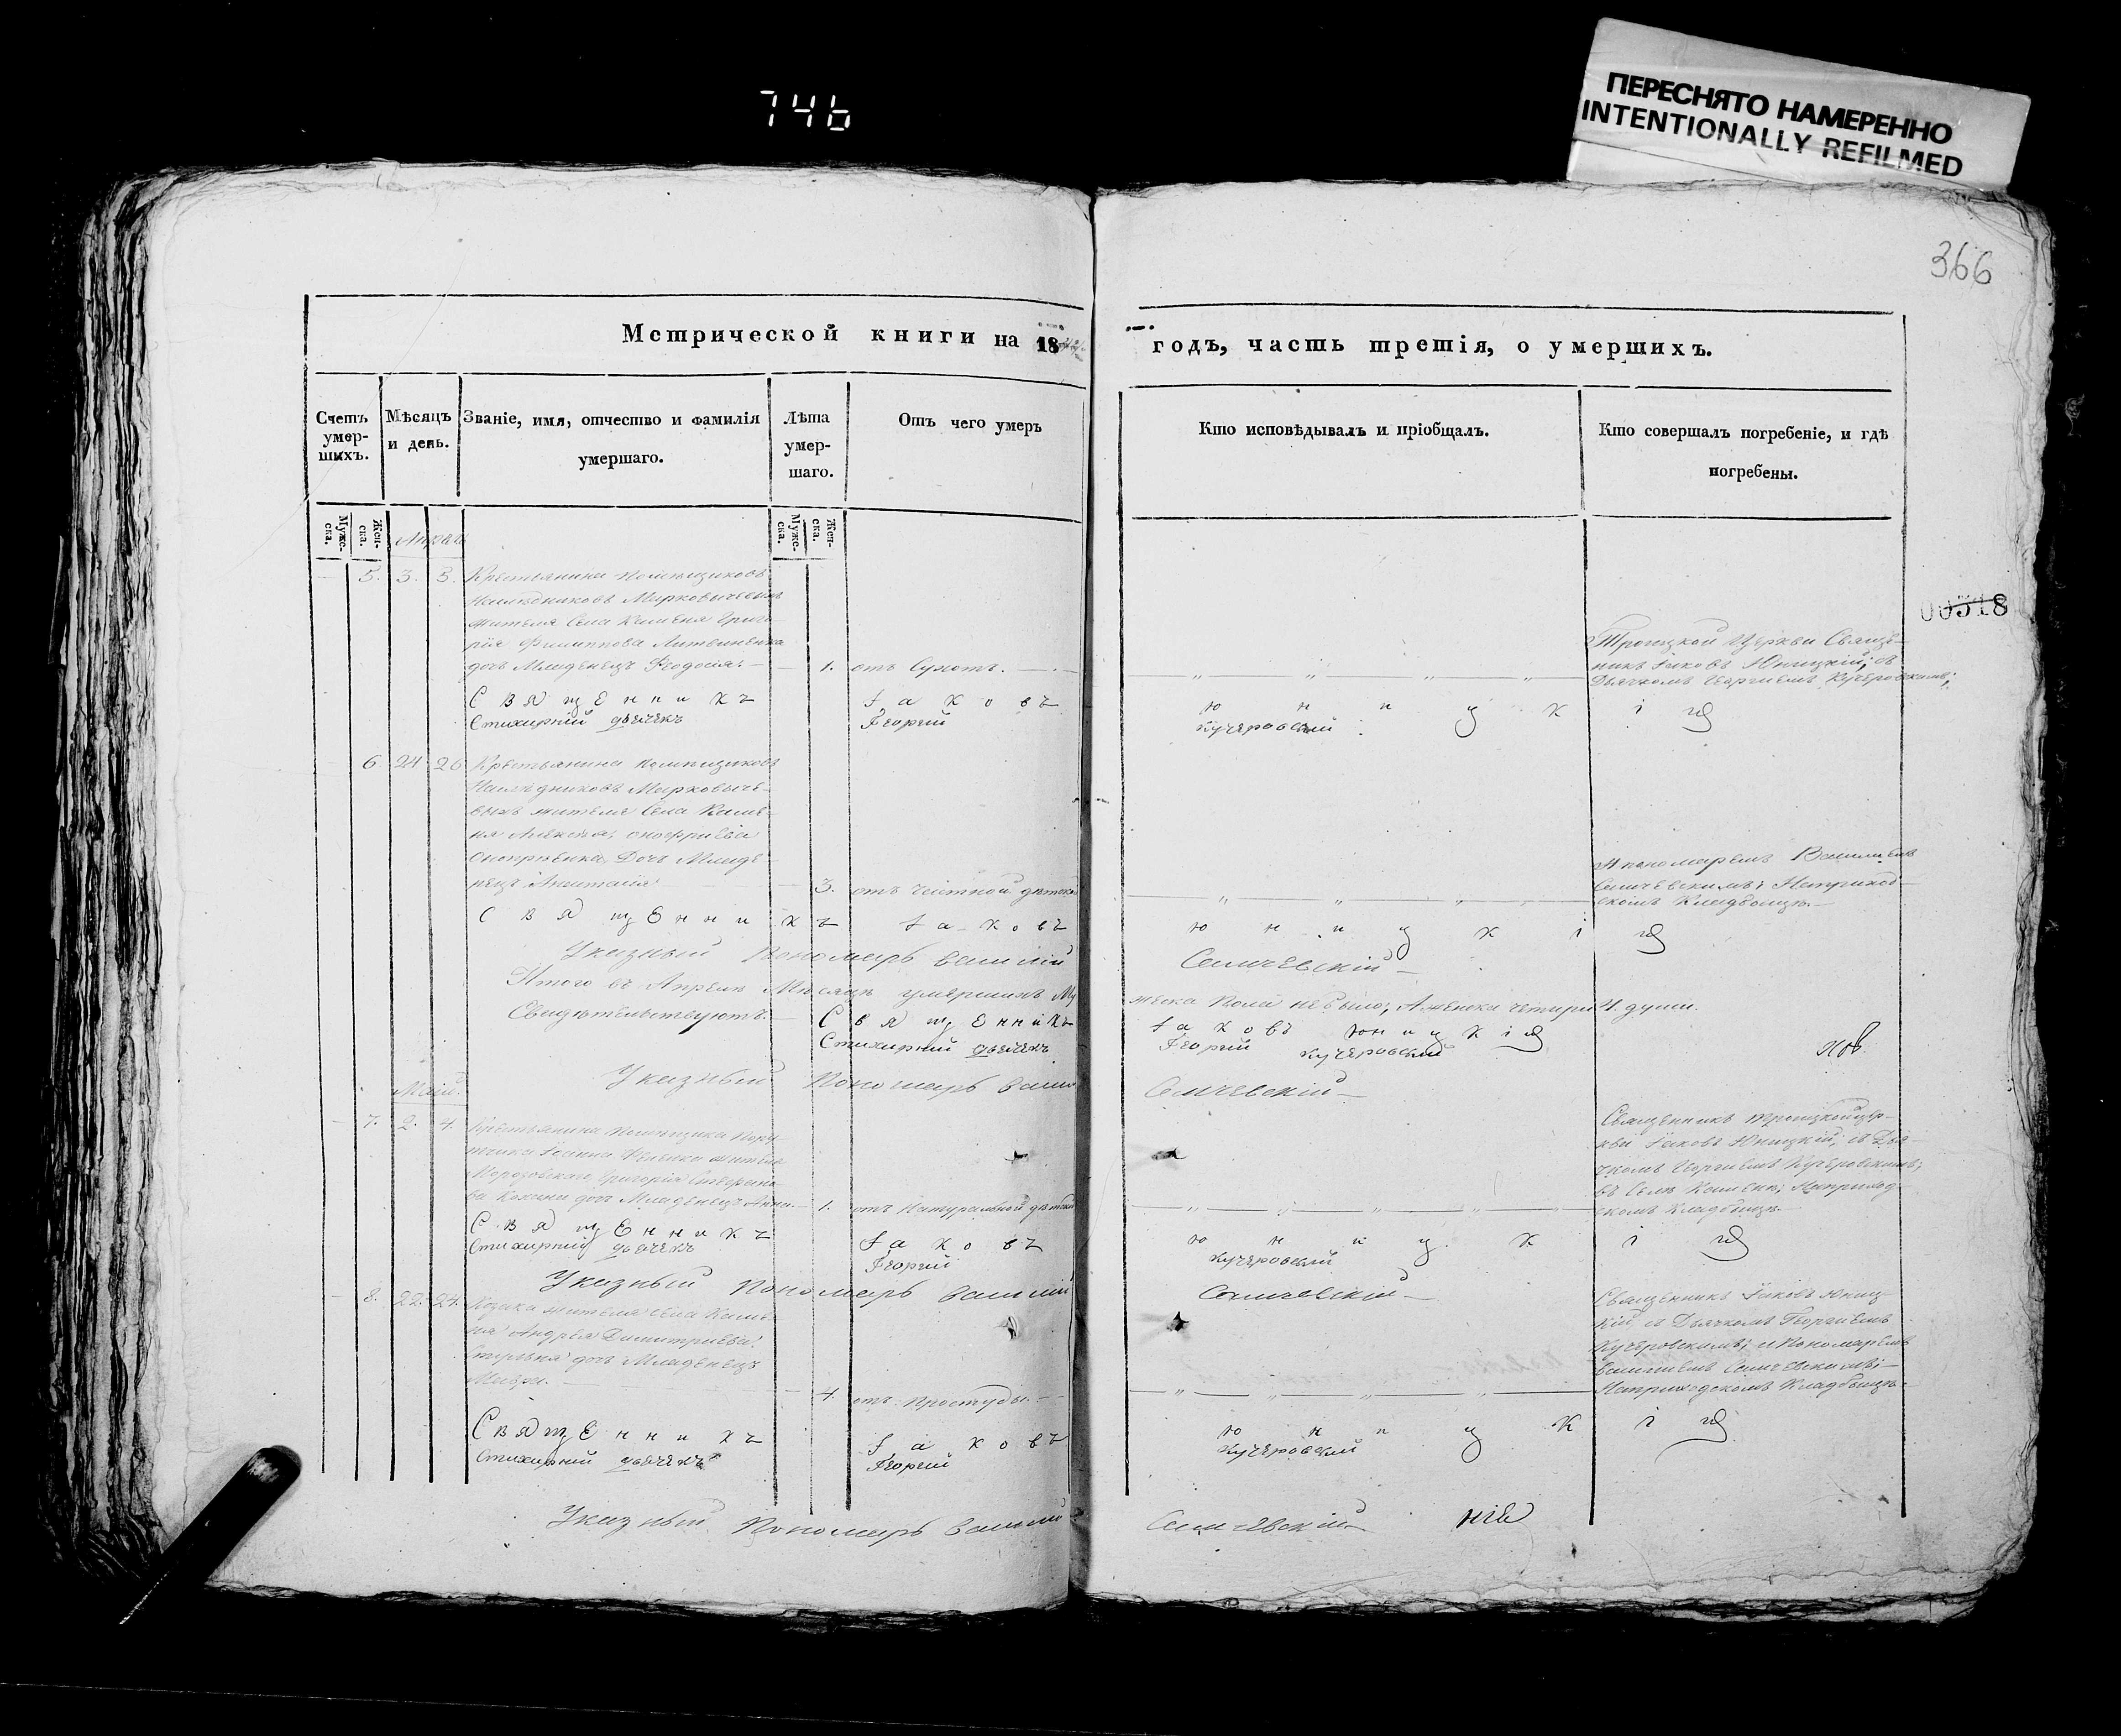 746
ПЕРЕСНЯТО НАМЕРЕННО
INTENTIONALLY REFILMED
366
Метрической книги на 18
годъ, часть третія, о умершихъ.
Счетъ умер-шихъ.
Мѣсяцъ и день.
Званіе, имя, отчество и фамилія умершаго.
Лѣта умер-шаго.
Отъ чего умеръ
Кто исповѣдывалъ и пріобщалъ.
Кто совершалъ погребеніе, и гдѣ погребены.
Муже-ска.
Жен-ска.
Муже-ска.
Жен-ска.
00518
5. 3. 5. Крестьянина помѣщиковъ
Наслѣдниковъ Марковычевыхъ
жителя Села Каменя Григо-
рія Филиппова Литвиненка
дочь Младенецъ Феодосія. — 1. отъ Сухотъ.
Троицкой Церкви Священ-
никъ Іаковъ Юницкій; съ
Дьячкомъ Георгіемъ Кучеровскимъ;
Священникъ Іаковъ Юницкій
Стихирный дьячекъ Георгій Кучеровский
6. 24 26 Крестьянина помѣщиковъ
Наслѣдниковъ Марковыче-
выхъ жителя Села Каме-
ня Алексѣя Онофріева
Дочь Младе-
нецъ Анастасія 3. отъ
и пономаремъ Василіемъ
Самчевскимъ; На приход-
скомъ Кладбищѣ.
Священникъ Іаковъ Юницкій
Указный Пономарь Василій Самчевскій
Итого въ Апрелѣ Мѣсяцѣ умершихъ Му
жеска Пола небыло, А женска четыри 4. души.
Свидѣтельствуютъ. Священникъ Іаковъ Юницкій
Стихирный дьячекъ Георгий Кучеровский
Указный Пономарь Васил Самчевскій
Май.
7. 2. 4. Крестьянина помѣщика Пору-
чика жителя
Григорія
дочь Младенецъ Анна. — 1. отъ Натуральной
Священникъ Троицкой цер-
кви Іаковъ Юницкій, съ Дья-
чкомъ Георгіемъ Кучеровскимъ;
въ Селѣ Каменѣ; На приход-
скомъ Кладбищѣ.
Священникъ Іаковъ Юницкій
Стихирный дьячекъ Георгий Кучеровский
Указный Пономарь Василій Самчевскій
8. 22. 24. Козака жителя Села Каме-
ня Андрея Димитріева
дочь Младенецъ
4. отъ Простуды.
Священникъ Іаковъ Юниц-
кій съ Дьячкомъ Георгіемъ
Кучеровскимъ; и Пономаремъ
Василіемъ Самчевскимъ;
На приходскомъ Кладбищѣ.
Священникъ Іаковъ Юницкій
Стихирный дьячекъ Георгий Кучеровский
Указный Пономарь Василій Самчевскій